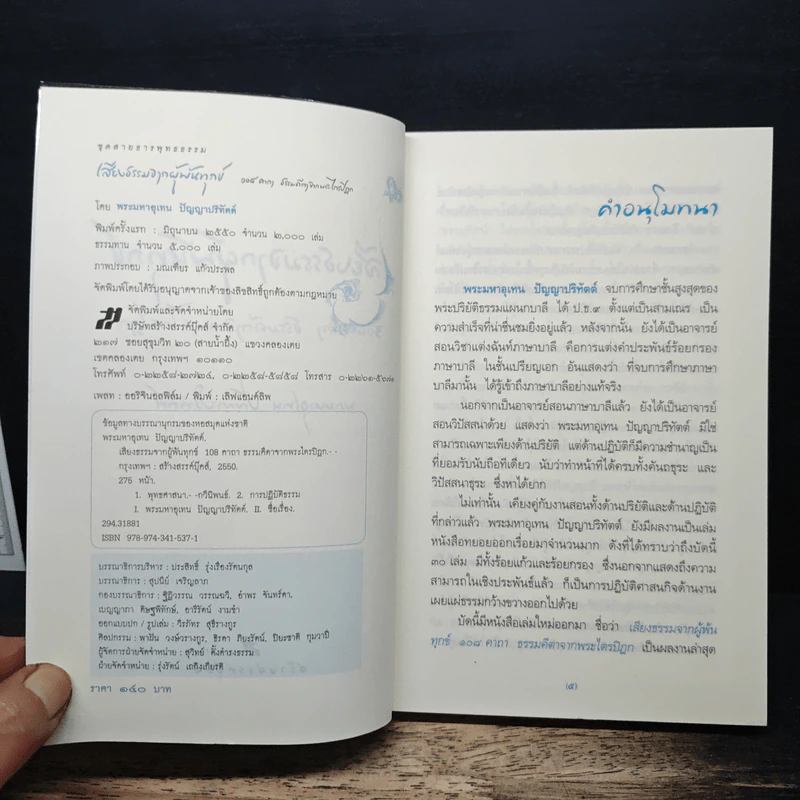 ชุดสายธารพุทธธรรม
เสียงธรรมจากผู้พ้นทุกข์ ๑๐๘ คาถา ธรรมคีตาจากพระไตรปิฎก
โดย พระมหาอุเทน ปัญญาปริทัตต์
พิมพ์ครั้งแรก : มิถุนายน ๒๕๕๐ จำนวน ๒,๐๐๐ เล่ม
ธรรมทาน จำนวน ๕,๐๐๐ เล่ม
ภาพประกอบ : มณเฑียร แก้วประพล
จัดพิมพ์โดยได้รับอนุญาตจากเจ้าของลิขสิทธิ์ถูกต้องตามกฎหมาย
จัดพิมพ์และจัดจำหน่ายโดย
บริษัทสร้างสรรค์บุ๊คส์ จำกัด
๒๑๗ ซอยสุขุมวิท ๒๐ (สายน้ำผึ้ง) แขวงคลองเตย
เขตคลองเตย กรุงเทพฯ ๑๐๑๑๐
โทรศัพท์ ๐-๒๒๕๘-๒๗๒๔, ๐-๒๒๕๘-๕๘๕๘ โทรสาร
เพลท : ออริจินอลฟิล์ม / พิมพ์ : เลิฟแอนด์ลิพ
ข้อมูลทางบรรณานุกรมของหอสมุดแห่งชาติ
พระมหาอุเทน ปัญญาปริทัตต์.
เสียงธรรมจากผู้พ้นทุกข์ 108 คาถา ธรรมคีตาจากพระไตรปิฎก.- -
กรุงเทพฯ : สร้างสรรค์บุ๊คส์, 2550.
276 หน้า.
1. พุทธศาสนา.- -กวีนิพนธ์. 2. การปฏิบัติธรรม
I. พระมหาอุเทน ปัญญาปริทัตต์. II. ชื่อเรื่อง.
294.31881
ISBN 978-974-341-537-1
บรรณาธิการบริหาร : ประสิทธิ์ รุ่งเรืองรัตนกุล
บรรณาธิการ : สุปนีย์ เจริญลาภ
กองบรรณาธิการ : ฐิฏิวรรณ วรรณฉวี, อำพร จันทร์คา.
เบญญาภา ดิษฐพิทักษ์, อารีรัตน์ งามขำ
ออกแบบปก / รูปเล่ม : วีรภัทร สุธีรางกูร
ศิลปกรรม : พาฝัน วงษ์วรางกูร, ธีรดา ภิยะรัตน์, ปิยะชาติ กุมวาปี
ผู้จัดการฝ่ายจัดจำหน่าย : สุวิทย์ ตั้งดำรงธรรม
ฝ่ายจัดจำหน่าย : รุ่งรัตน์ เถลิงเกียรติ
ราคา ๑๔๐ บาท
คำอนุโมทนา
พระมหาอุเทน ปัญญาปริทัตต์ จบการศึกษาชั้นสูงสุดของ
พระปริยัติธรรมแผนกบาลี ได้ ป.ธ.๙ ตั้งแต่เป็นสามเณร เป็น
ความสำเร็จที่น่าชื่นชมยิ่งอยู่แล้ว หลังจากนั้น ยังได้เป็นอาจารย์
สอนวิชาแต่งฉันท์ภาษาบาลี คือการแต่งคำประพันธ์ร้อยกรอง
ภาษาบาลี ในชั้นเปรียญเอก อันแสดงว่า ที่จบการศึกษาภาษา
บาลีมานั้น ได้รู้เข้าถึงภาษาบาลีอย่างแท้จริง
นอกจากเป็นอาจารย์สอนภาษาบาลีแล้ว ยังได้เป็นอาจารย์
สอนวิปัสสนาด้วย แสดงว่า พระมหาอุเทน ปัญญาปริทัตต์ มิใช่
สามารถเฉพาะเพียงด้านปริยัติ แต่ด้านปฏิบัติก็มีความชำนาญเป็น
ที่ยอมรับนับถือทีเดียว นับว่าทำหน้าที่ได้ครบทั้งคันถธุระ และ
วิปัสสนาธุระ ซึ่งหาได้ยาก
ไม่เท่านั้น เคียงคู่กับงานสอนทั้งด้านปริยัติและด้านปฏิบัติ
ที่กล่าวแล้ว พระมหาอุเทน ปัญญาปริทัตต์ ยังมีผลงานเป็นเล่ม
หนังสือทยอยออกเรื่อยมาจำนวนมาก ดังที่ได้ทราบว่าถึงบัดนี้
๓๐ เล่ม มีทั้งร้อยแก้วและร้อยกรอง ซึ่งนอกจากแสดงถึงความ
สามารถในเชิงประพันธ์แล้ว ก็เป็นการปฏิบัติศาสนกิจด้านงาน
เผยแผ่ธรรมกว้างขวางออกไปด้วย
บัดนี้มีหนังสือเล่มใหม่ออกมา ชื่อว่า เสียงธรรมจากผู้พ้น
ทุกข์ ๑๐๘ คาถา ธรรมคีตาจากพระไตรปิฎก เป็นผลงานล่าสุด
(๕)